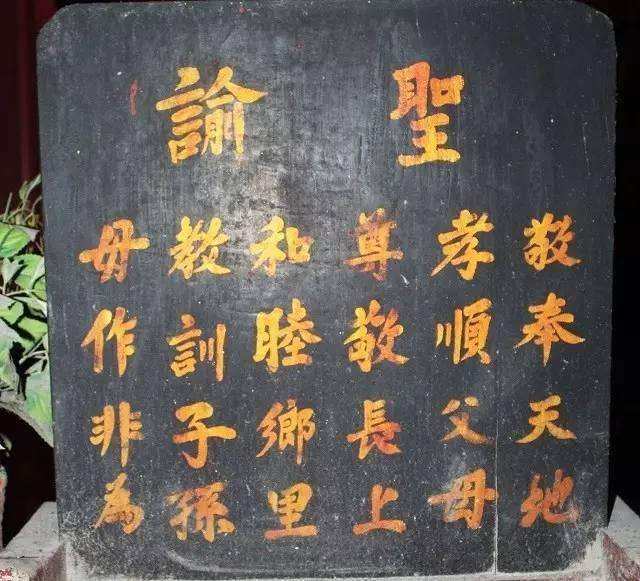 聖諭
敬奉天地
孝順父母
尊敬長上
和睦鄉里
教訓子孫
毋作非為